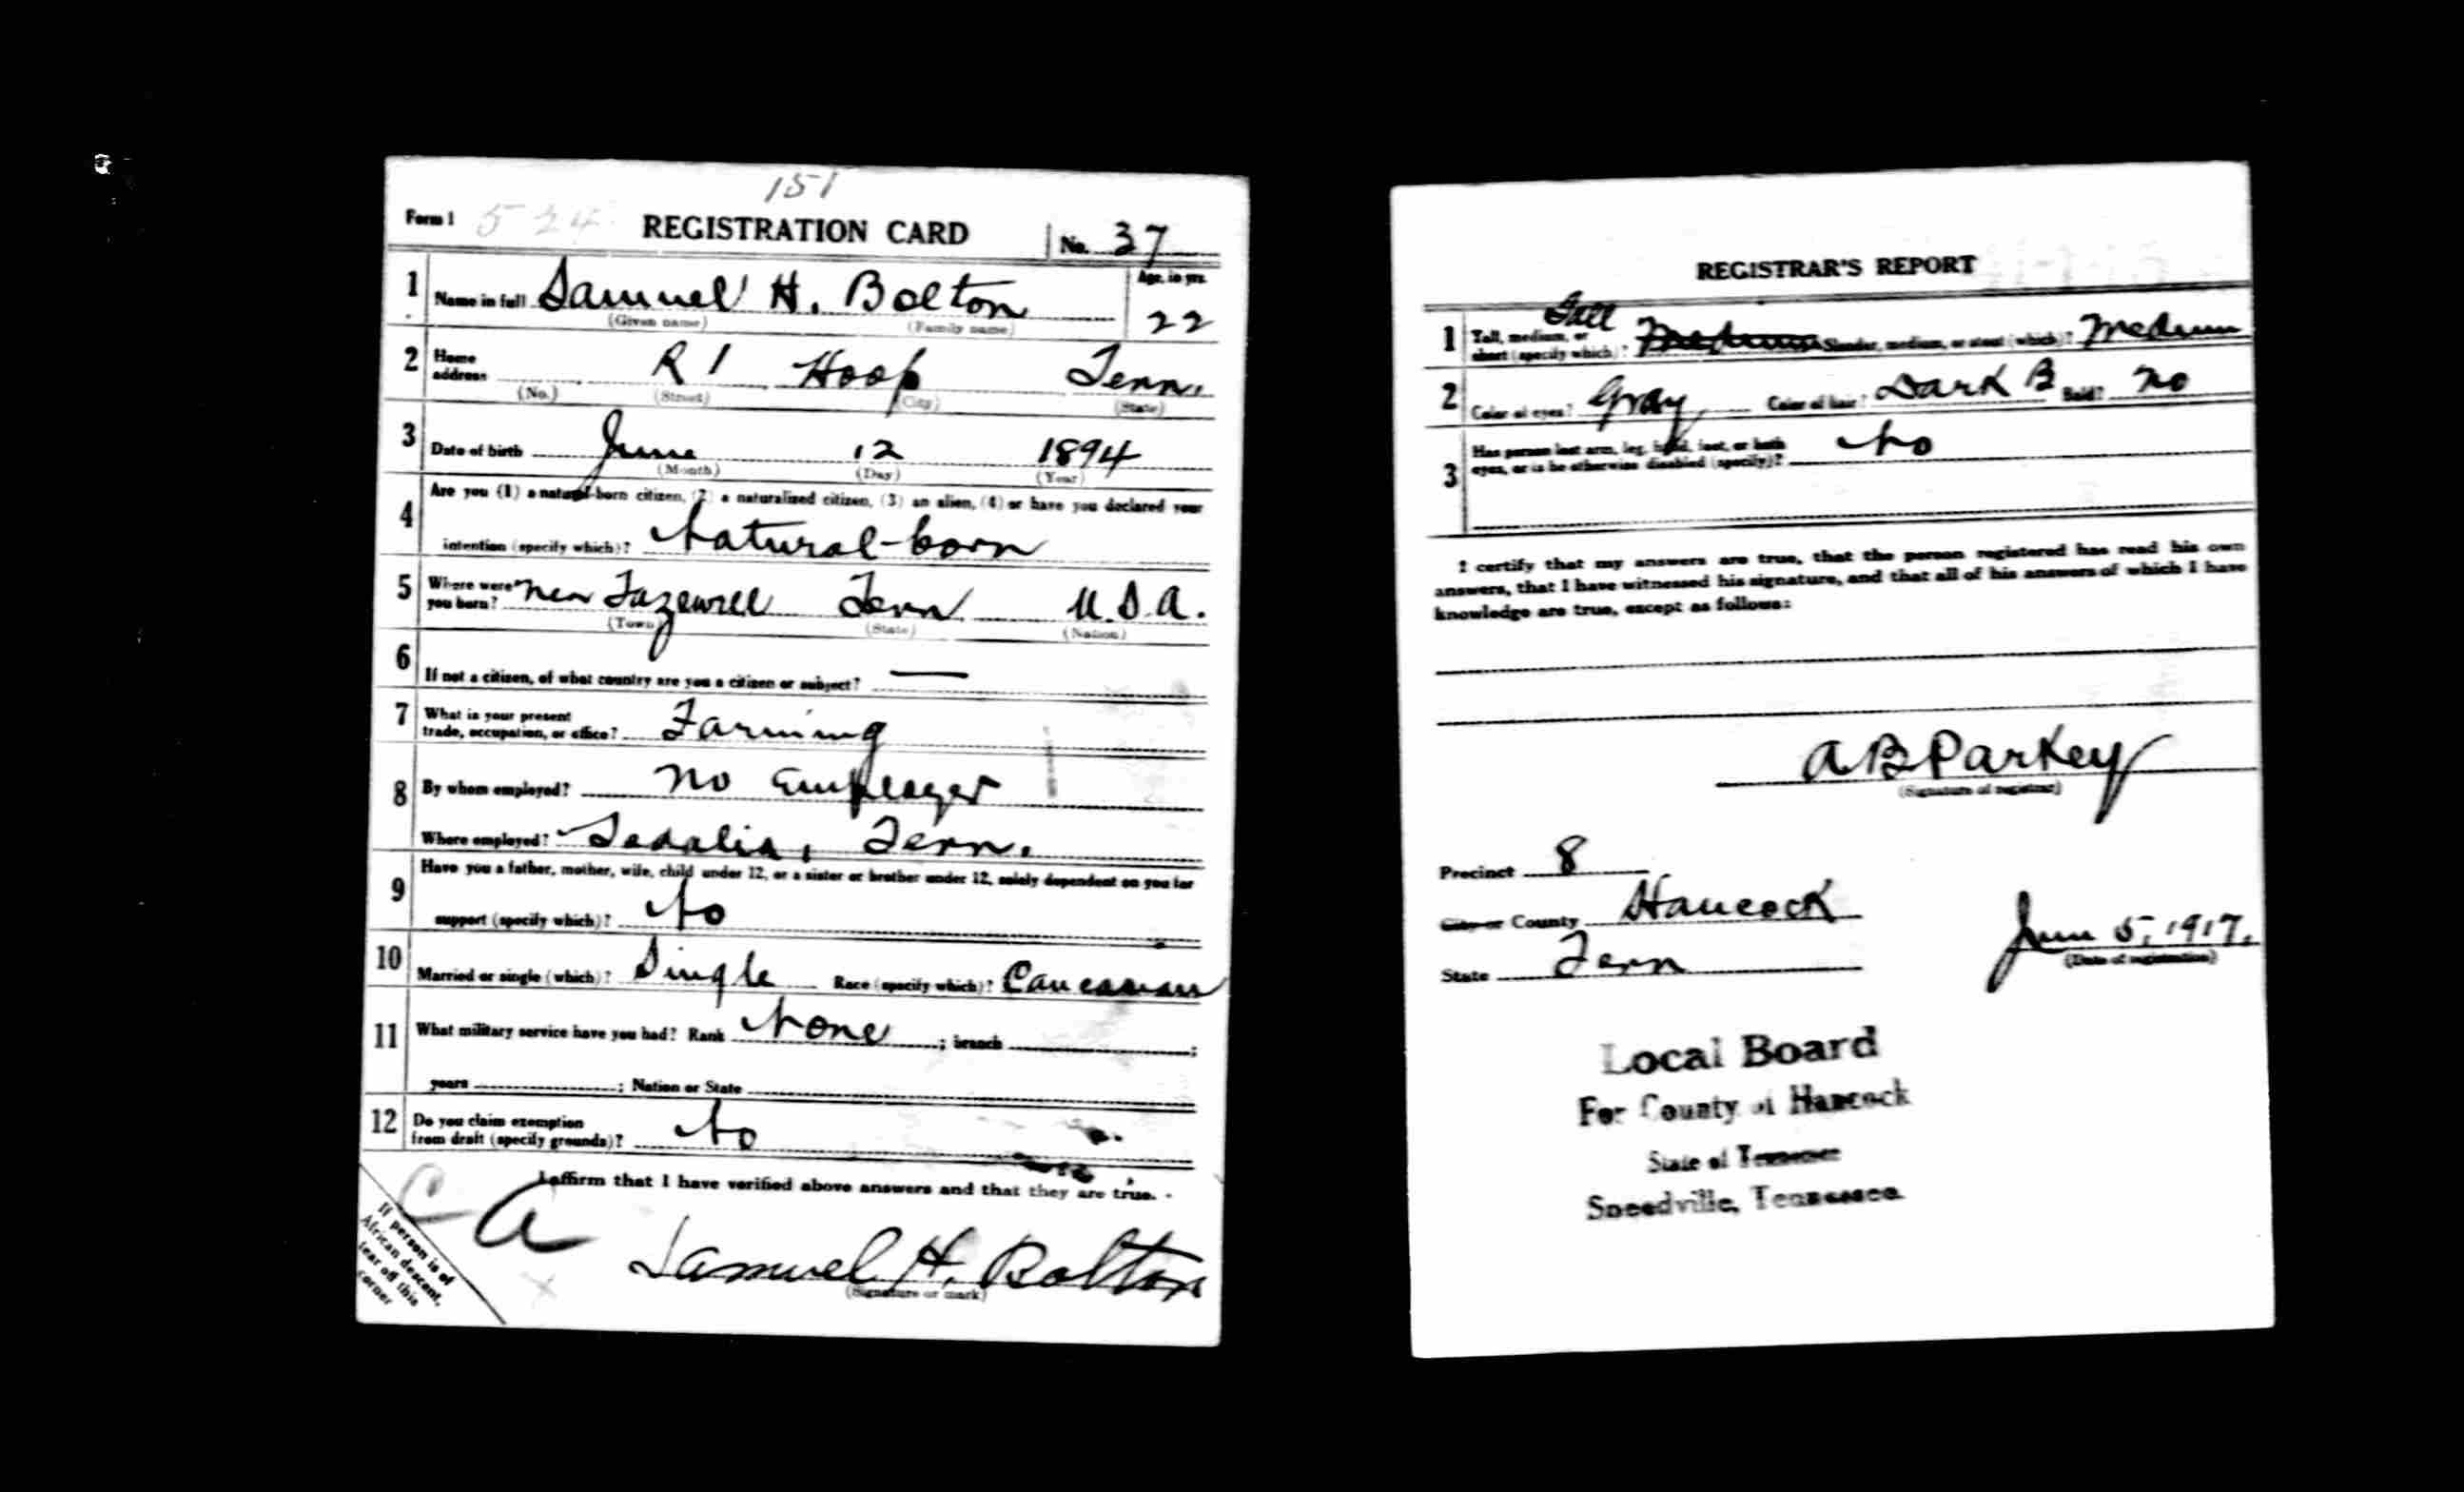 151
Form 1 524 REGISTRATION CARD No. 37
1 Name in full Samuel H. Bolton Age, in yrs. 22
(Given name) (Family name)
2 Home address R 1 Hoop Tenn.
(No.) (Street) (City) (State)
3 Date of birth June 12 1894
(Month) (Day) (Year)
4 Are you (1) a natural-born citizen, (2) a naturalized citizen, (3) an alien, (4) or have you declared your
intention (specify which)? Natural-born
5 Where were you born? near Tazewell Tenn U.S.A.
(Town) (State) (Nation)
6 If not a citizen, of what country are you a citizen or subject? —
7 What is your present trade, occupation, or office? Farming
8 By whom employed? No Employer
Where employed? Sedalia, Tenn.
9 Have you a father, mother, wife, child under 12, or a sister or brother under 12, solely dependent on you for
support (specify which)? No
10 Married or single (which)? Single Race (specify which)? Caucasian
11 What military service have you had? Rank None ; branch ;
years ; Nation or State
12 Do you claim exemption from draft (specify grounds)? No
I affirm that I have verified above answers and that they are true.
C A
Samuel H. Bolton
(Signature or mark)
If person is of
African descent,
tear off this
corner
REGISTRAR'S REPORT
1 Tall, medium, or short (specify which)? Tall Medium Slender, medium, or stout (which)? Medium
2 Color of eyes? Gray Color of hair? Dark B Bald? No
3 Has person lost arm, leg, hand, foot, or both
eyes, or is he otherwise disabled (specify)? No
I certify that my answers are true, that the person registered has read his own
answers, that I have witnessed his signature, and that all of his answers of which I have
knowledge are true, except as follows:
A B Parkey
(Signature of registrar)
Precinct 8
City or County Hancock
State Tenn
June 5, 1917.
(Date of registration)
Local Board
For County of Hancock
State of Tennessee
Sneedville, Tennessee